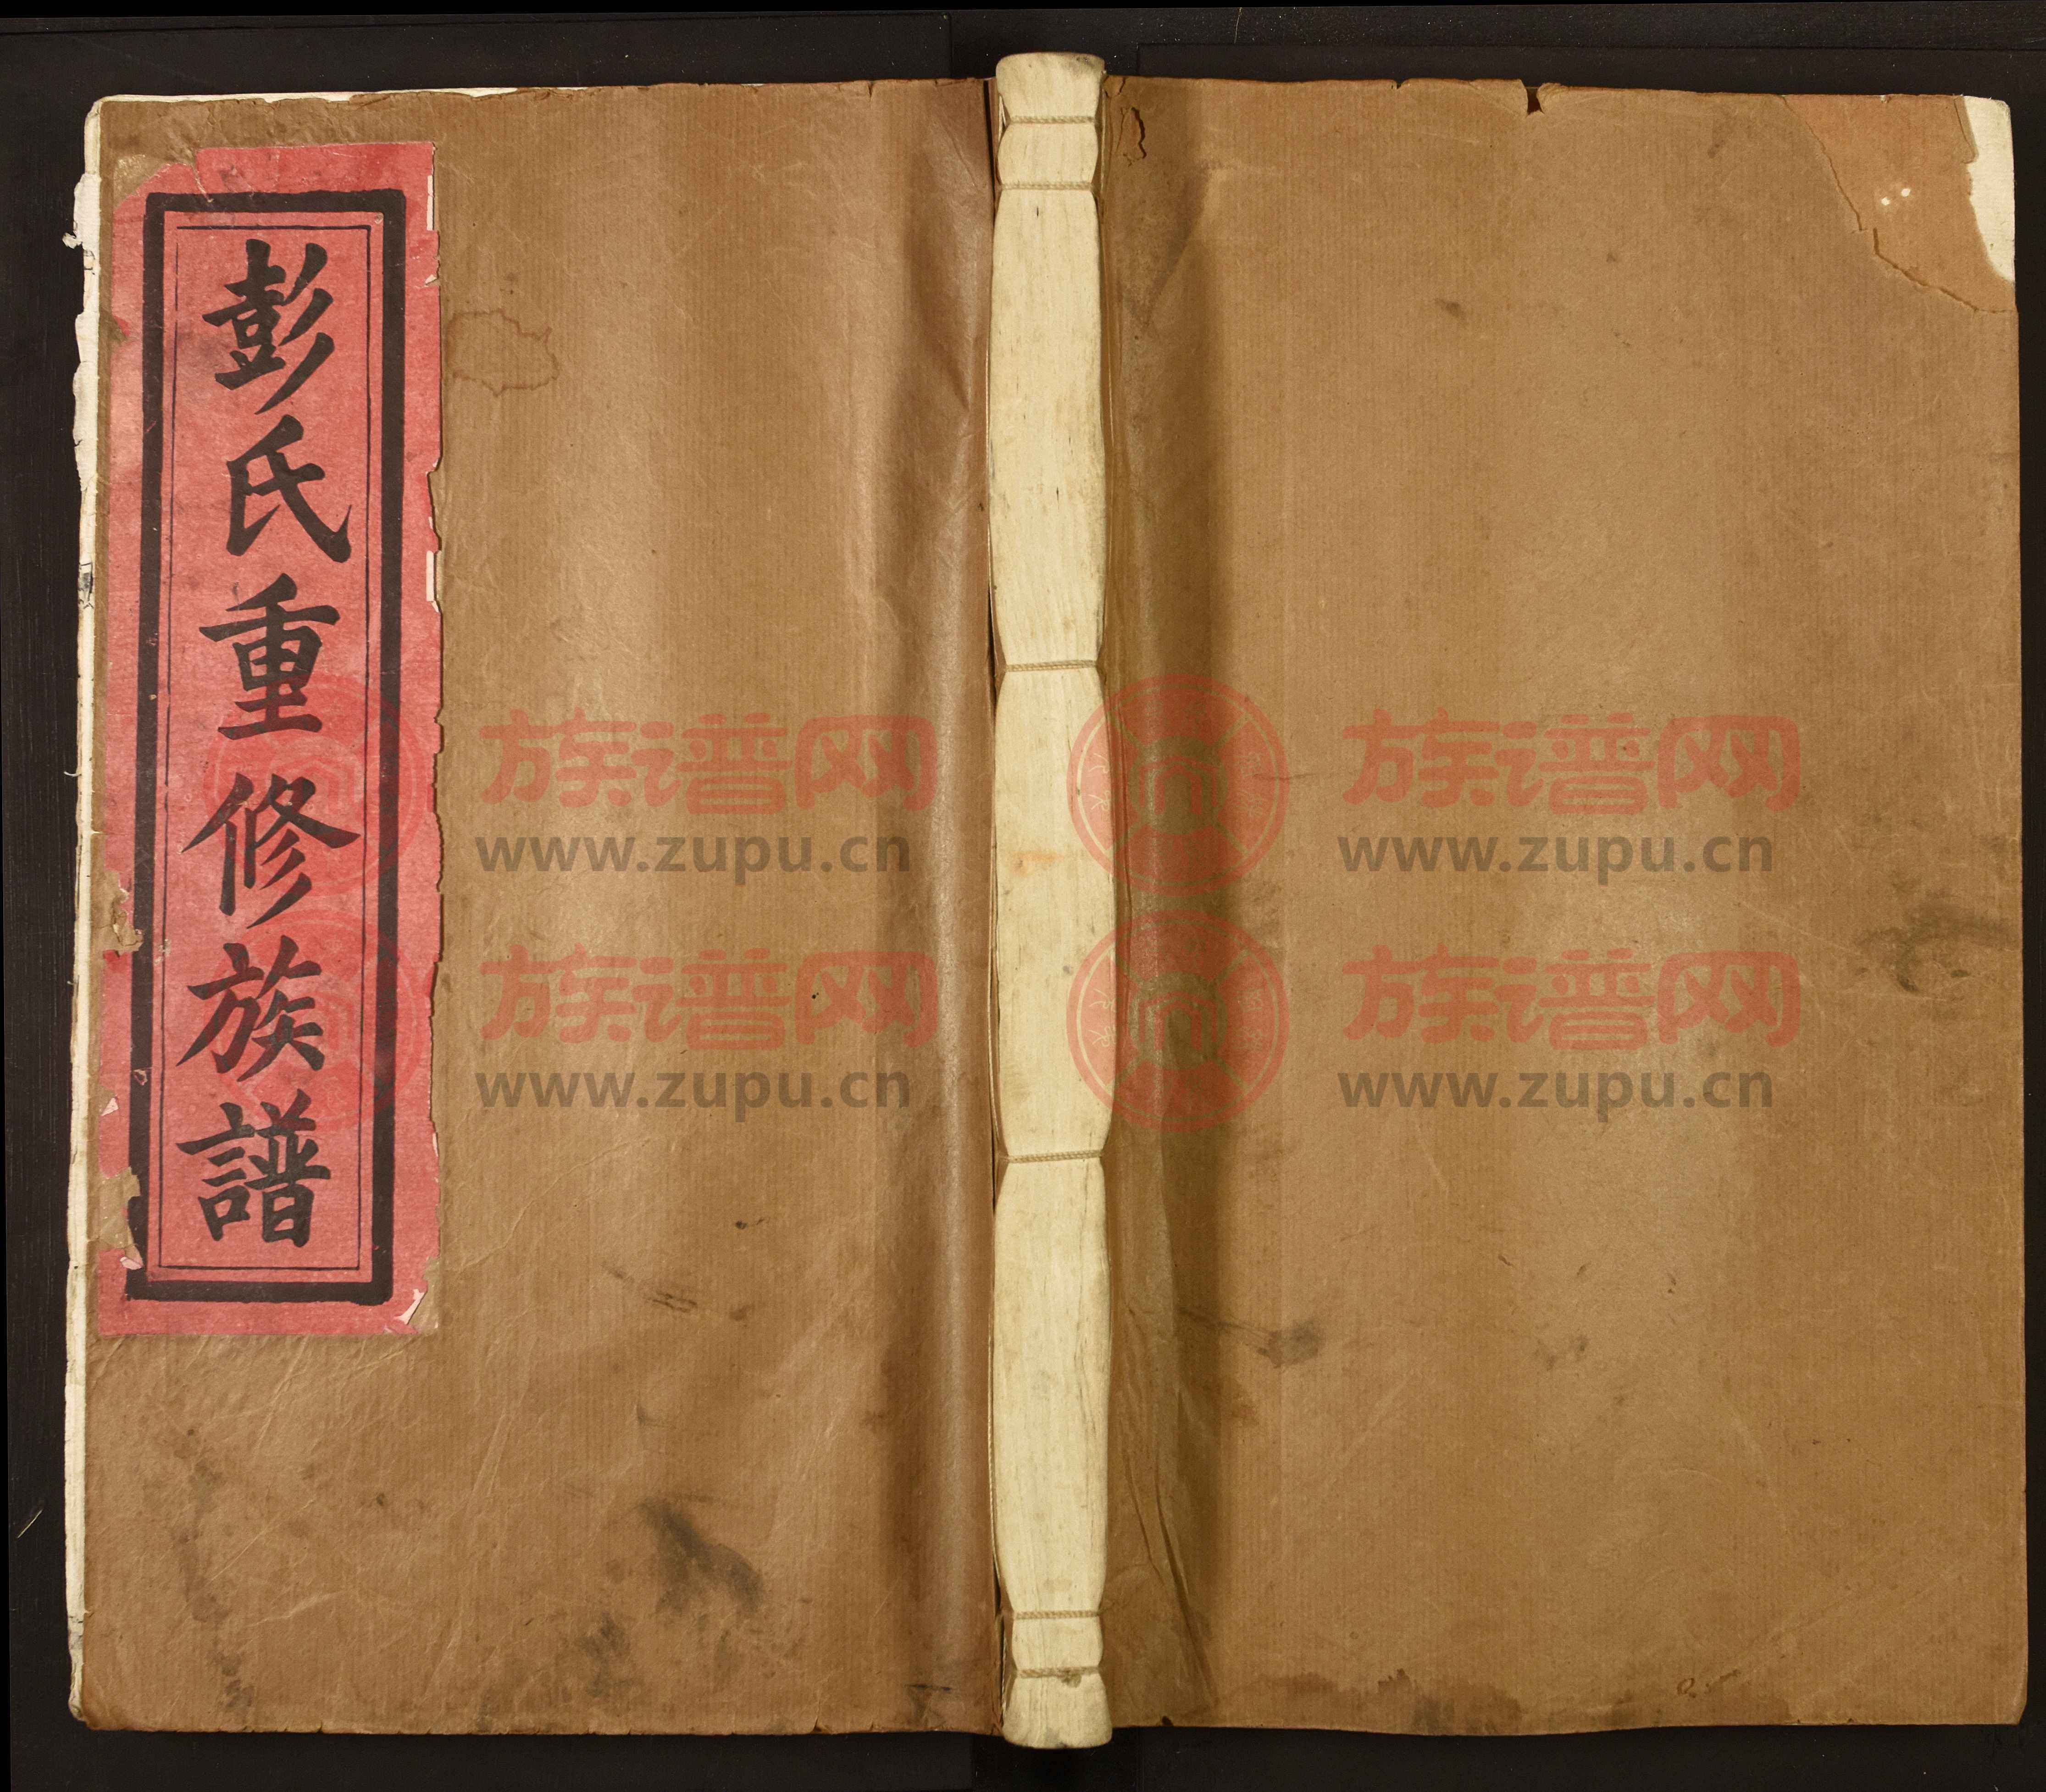 彭氏重修族譜
族谱网
www.zupu.cn
族谱网
www.zupu.cn
族谱网
www.zupu.cn
族谱网
www.zupu.cn